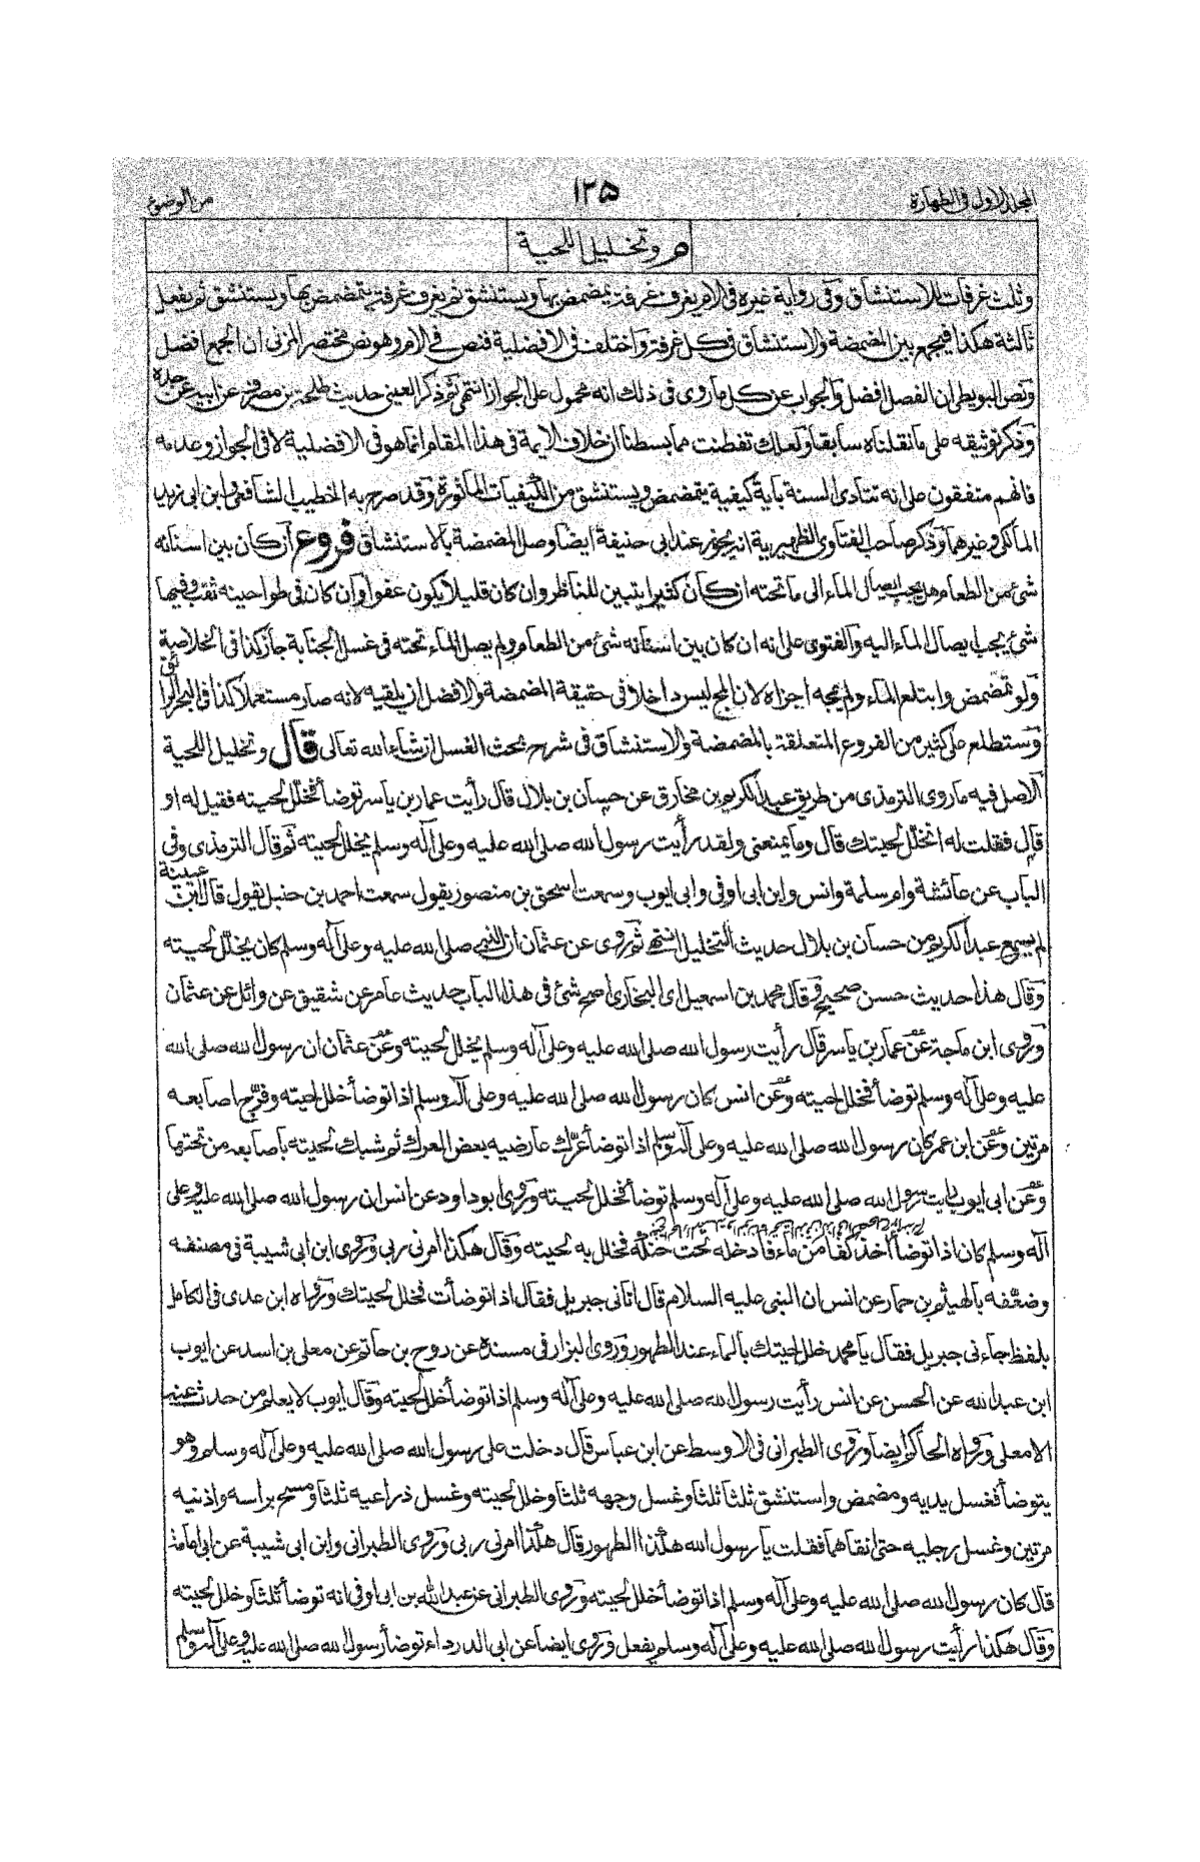 المجلد الاول فى الطهارة
١٢٥
من الوضوء
م وتخليل اللحية
وثلث غرفات للاستنشاق وفى رواية غيره فى الام يغرف غرفة يتمضمض بها ويستنشق ثم يغرف غرفة يتمضمض بها ويستنشق ثم يفعل
ثالثة هكذا فيجمع بين المضمضة والاستنشاق فى كل غرفة واختلف فى الافضلية فنص فى الام وهو نص مختصر المزنى ان الجمع افضل
ونص البويطى ان الفصل افضل والجواب عن كل ما روى فى ذلك انه محمول على الجواز انتهى ثم ذكر العينى حديث طلحة بن مصرف عن ابيه عن جده
وذكر توثيقه على ما نقلناه سابقا ولعلك تفطنت مما بسطنا ان خلاف الايمة فى هذا المقام انما هو فى الافضلية لا فى الجواز وعدمه
فانهم متفقون على انه تتادى السنة باية كيفية يتمضمض ويستنشق من الكيفيات المأثورة وقد صرح به الخطيب الشافعى وابن ابى زيد
المالكى وغيرهما وذكر صاحب الفتاوى الظهيرية انه يجوز عند ابى حنيفة ايضا وصل المضمضة بالاستنشاق فروع ان كان بين اسنانه
شئ من الطعام هل يجب ايصال الماء الى ما تحته ان كان كثيرا يتبين للناظر وان كان قليلا يكون عفوا وان كان فى طواحينه ثقب وفيها
شئ يجب ايصال الماء اليه والفتوى على انه ان كان بين اسنانه شئ من الطعام ولم يصل الماء تحته فى غسل الجنابة جاز كذا فى الخلاصة
ولو تمضمض وابتلع الماء ولم يمجه اجزاه لان المج ليس داخلا فى حقيقة المضمضة والافضل ان يلقيه لانه صار مستعملا كذا فى البحر الرائق
وستطلع على كثير من الفروع المتعلقة بالمضمضة والاستنشاق فى شرح بحث الغسل ان شاء الله تعالى قال وتخليل اللحية
الاصل فيه ما روى الترمذى من طريق عبد الكريم بن مخارق عن حسان بن بلال قال رأيت عمار بن ياسر توضأ فخلل لحيته فقيل له او
قال فقلت له اتخلل لحيتك قال وما يمنعنى ولقد رأيت رسول الله صلى الله عليه وعلى آله وسلم يخلل لحيته ثم قال الترمذى وفى
الباب عن عائشة وام سلمة وانس وابن ابى اوفى وابى ايوب وسمعت اسحق بن منصور يقول سمعت احمد بن حنبل يقول قال ابن عيينة
لم يسمع عبد الكريم من حسان بن بلال حديث التخليل انتهى ثم روى عن عثمان ان النبى صلى الله عليه وعلى آله وسلم كان يخلل لحيته
وقال هذا حديث حسن صحيح وقال محمد بن اسمعيل اى البخارى اصح شئ فى هذا الباب حديث عامر عن شقيق عن وائل عن عثمان
وروى ابن ماجة عن عمار بن ياسر قال رأيت رسول الله صلى الله عليه وعلى آله وسلم يخلل لحيته وعن عثمان ان رسول الله صلى الله
عليه وعلى آله وسلم توضأ فخلل لحيته وعن انس كان رسول الله صلى الله عليه وعلى آله وسلم اذا توضأ خلل لحيته وفرج اصابعه
مرتين وعن ابن عمر كان رسول الله صلى الله عليه وعلى آله وسلم اذا توضأ عرك عارضيه بعض العرك ثم شبك لحيته باصابعه من تحتها
وعن ابى ايوب رايت رسول الله صلى الله عليه وعلى آله وسلم توضأ فخلل لحيته وروى ابو داود عن انس ان رسول الله صلى الله عليه وعلى
آله وسلم كان اذا توضأ اخذ كفا من ماء فادخله تحت حنكه فخلل به لحيته وقال هكذا امرنى ربى وروى ابن ابى شيبة فى مصنفه
وضعفه بالهيثم بن حمار عن انس ان النبى عليه السلام قال اتانى جبريل فقال اذا توضأت فخلل لحيتك ورواه ابن عدى فى الكامل
بلفظ جاءنى جبريل فقال يا محمد خلل لحيتك بالماء عند الطهور وروى البزار فى مسنده عن روح بن حاتم عن معلى بن اسد عن ايوب
ابن عبد الله عن الحسن عن انس رأيت رسول الله صلى الله عليه وعلى آله وسلم اذا توضأ خلل لحيته وقال ايوب لا يعلم من حدث عنه
الا معلى ورواه الحاكم ايضا وروى الطبرانى فى الاوسط عن ابن عباس قال دخلت على رسول الله صلى الله عليه وعلى آله وسلم وهو
يتوضأ فغسل يديه ومضمض واستنشق ثلثا ثلثا وغسل وجهه ثلثا وخلل لحيته وغسل ذراعيه ثلثا ومسح براسه واذنيه
مرتين وغسل رجليه حتى انقاهما فقلت يا رسول الله هكذا الطهور قال هكذا امرنى ربى وروى الطبرانى وابن ابى شيبة عن ابى امامة
قال كان رسول الله صلى الله عليه وعلى آله وسلم اذا توضأ خلل لحيته وروى الطبرانى عن عبد الله بن ابى اوفى انه توضأ ثلثا وخلل لحيته
وقال هكذا رأيت رسول الله صلى الله عليه وعلى آله وسلم يفعل وروى ايضا عن ابى الدرداء توضأ رسول الله صلى الله عليه وعلى آله وسلم